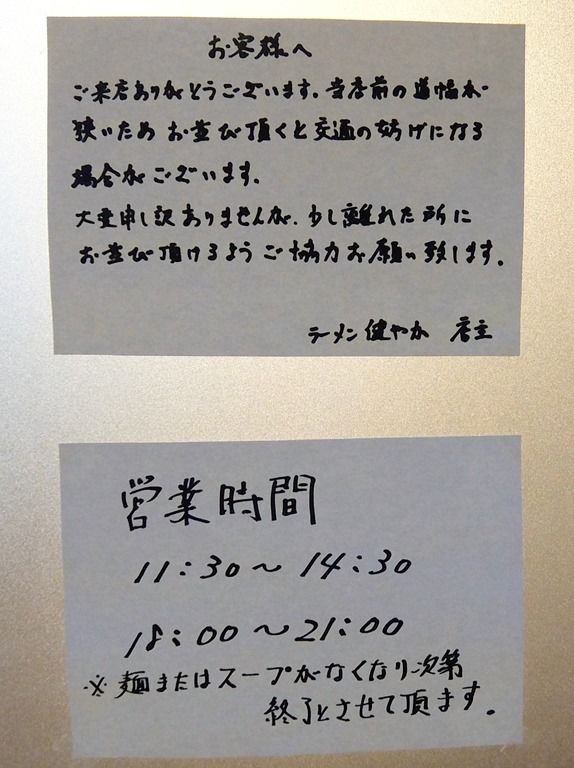 お客様へ
ご来店ありがとうございます。当店前の道幅が
狭いため お並び頂くと交通の妨げになる
場合がございます。
大変申し訳ありませんが、少し離れた所に
お並び頂けるよう ご協力お願い致します。
ラーメン 健やか 店主
営業時間
11:30～14:30
18:00～21:00
※麺またはスープがなくなり次第
終了とさせて頂ます。